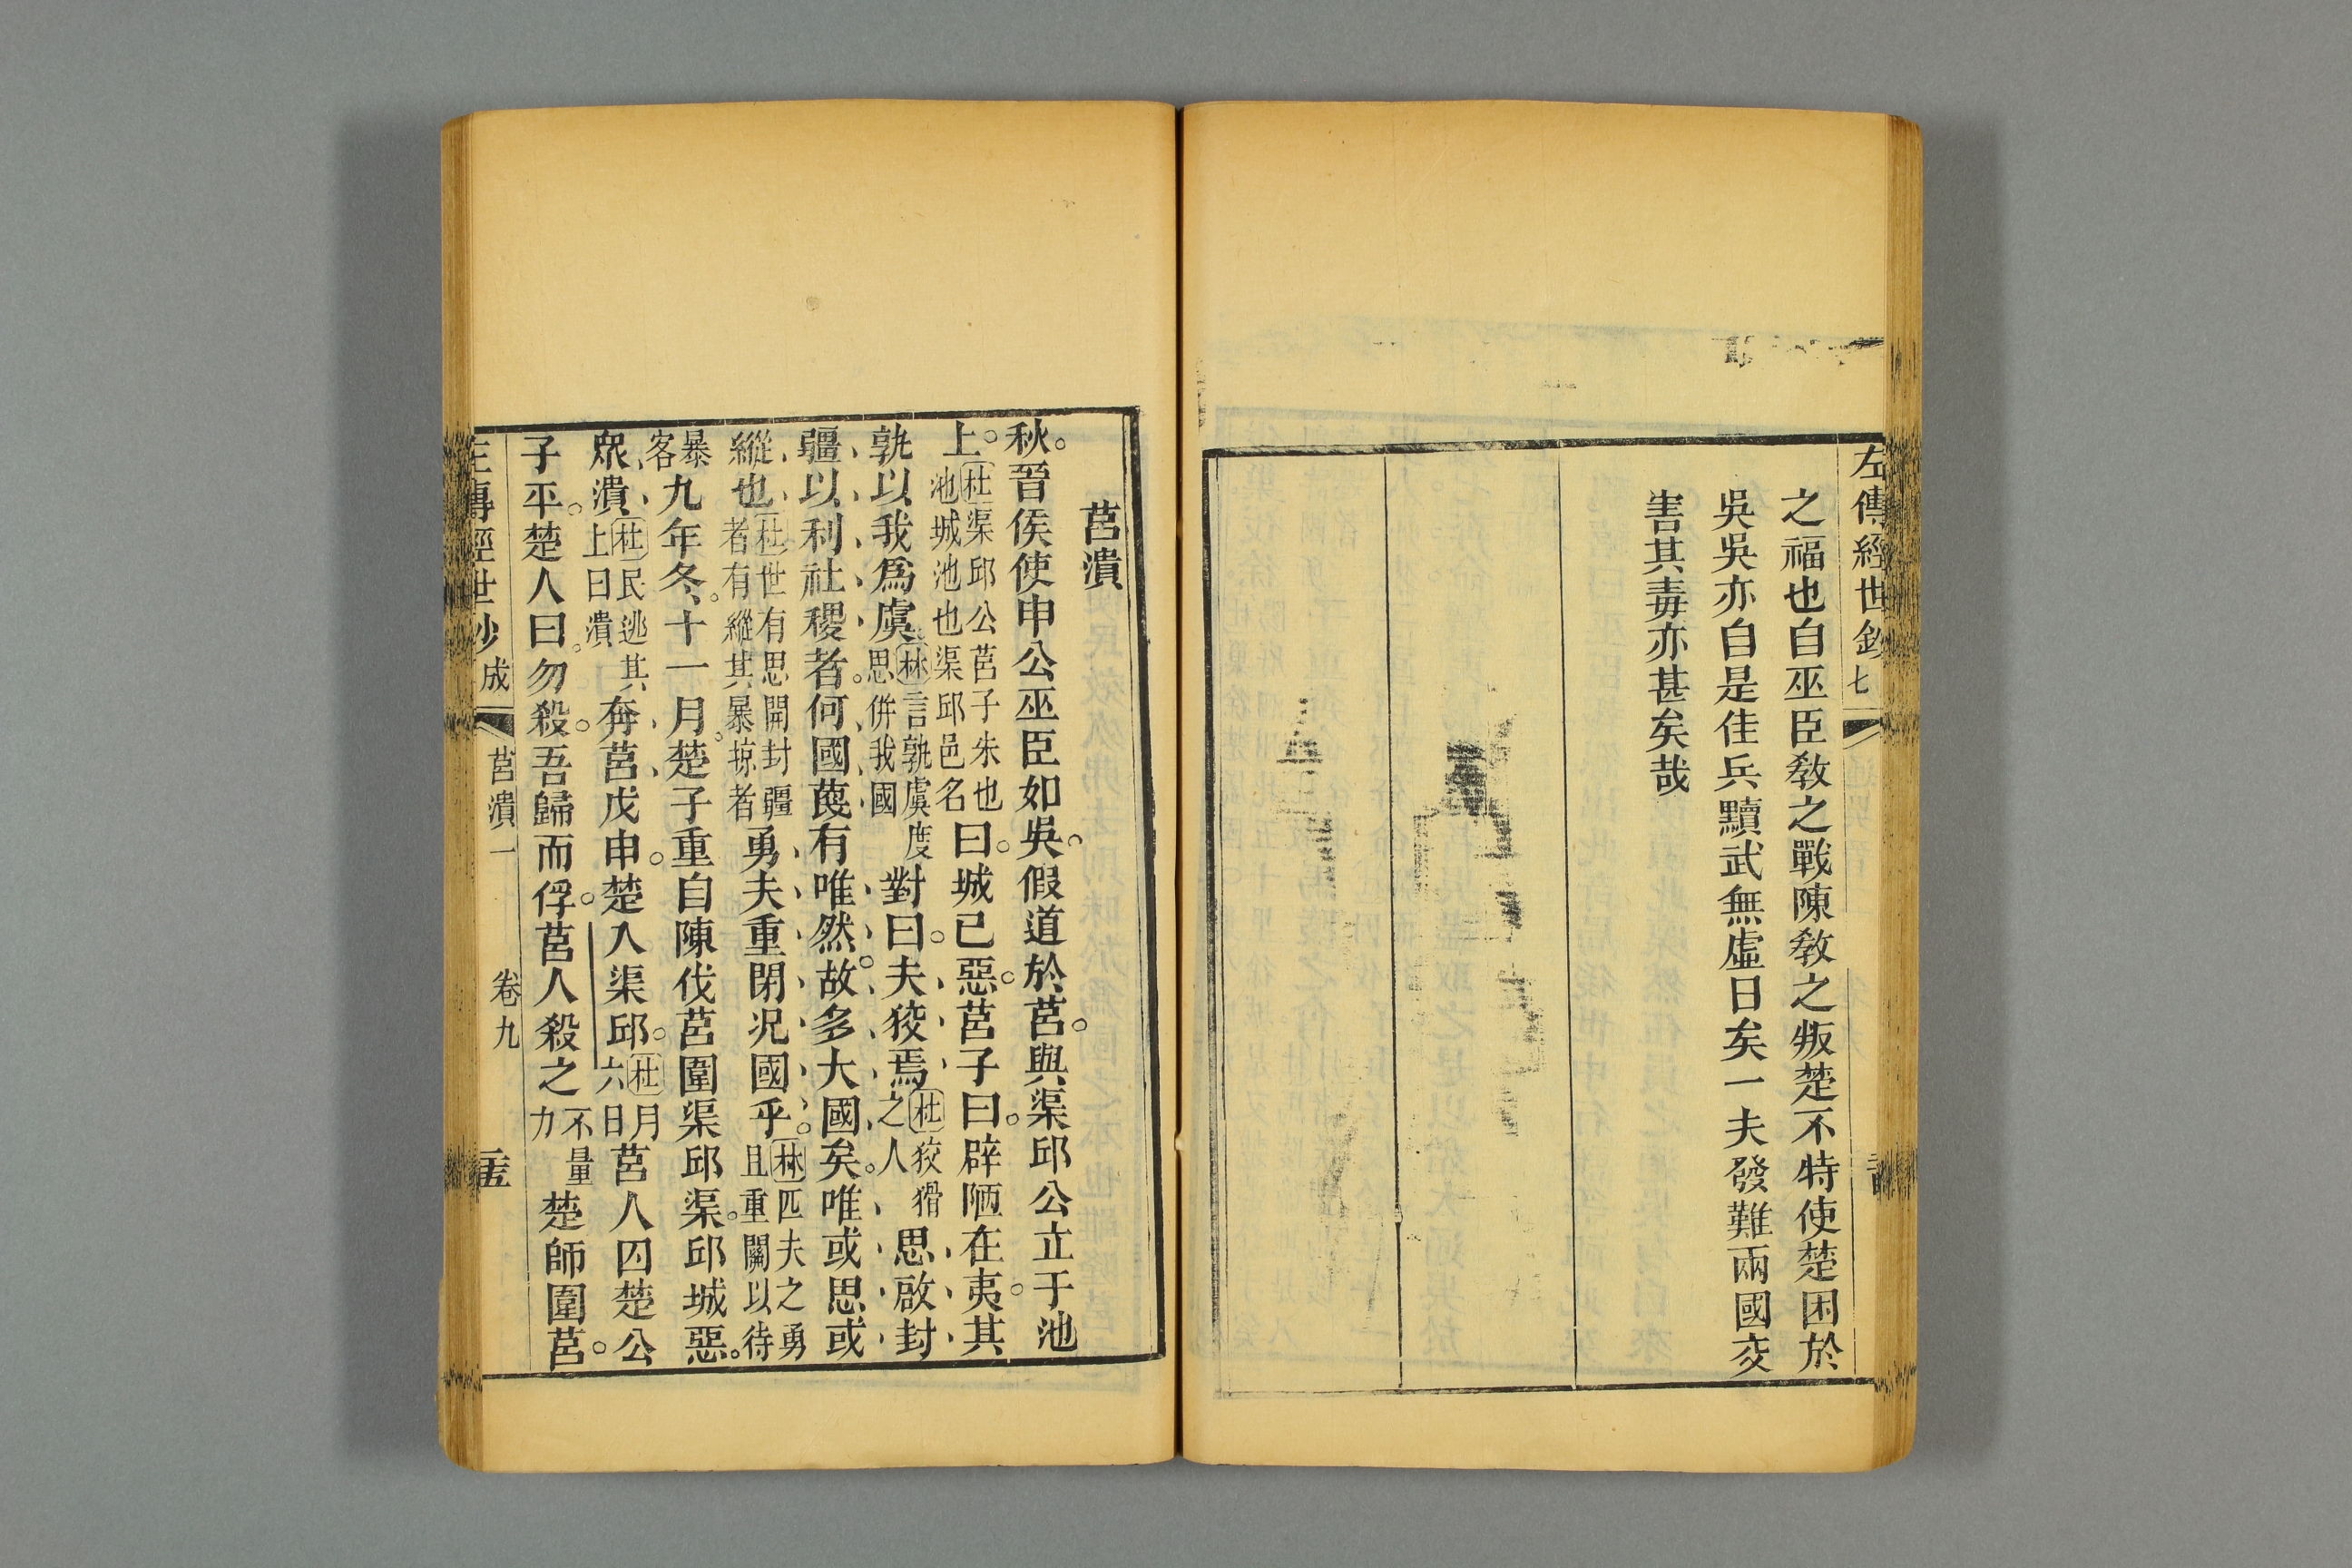 左傳經世鈔
七
之福也自巫臣敎之戰陳敎之叛楚不特使楚困於
吳吳亦自是佳兵黷武無虛日矣一夫發難兩國交
害其毒亦甚矣哉
莒潰
秋。晉侯使申公巫臣如吳。假道於莒。與渠邱公立于池
上。杜渠邱公莒子朱也池城池也渠邱邑名曰。城已惡。莒子曰。辟陋在夷。其
孰以我爲虞林言孰虞度思併我國對曰。夫狡焉杜狡猾之人思啟封
疆、以利社稷者。何國蔑有唯然。故多大國矣。唯或思或
縱也杜世有思開封疆者有縱其暴掠者勇夫重閉況國乎。林匹夫之勇且重關以待
暴客九年冬、十一月。楚子重自陳伐莒圍渠邱渠。邱城惡。
衆潰杜民逃其上曰潰奔莒戊申。楚入渠邱。杜月六日莒人囚楚公
子平。楚人曰。勿殺。吾歸而俘。莒人殺之不量力楚師圍莒。
左傳經世鈔
成
莒潰一
卷九